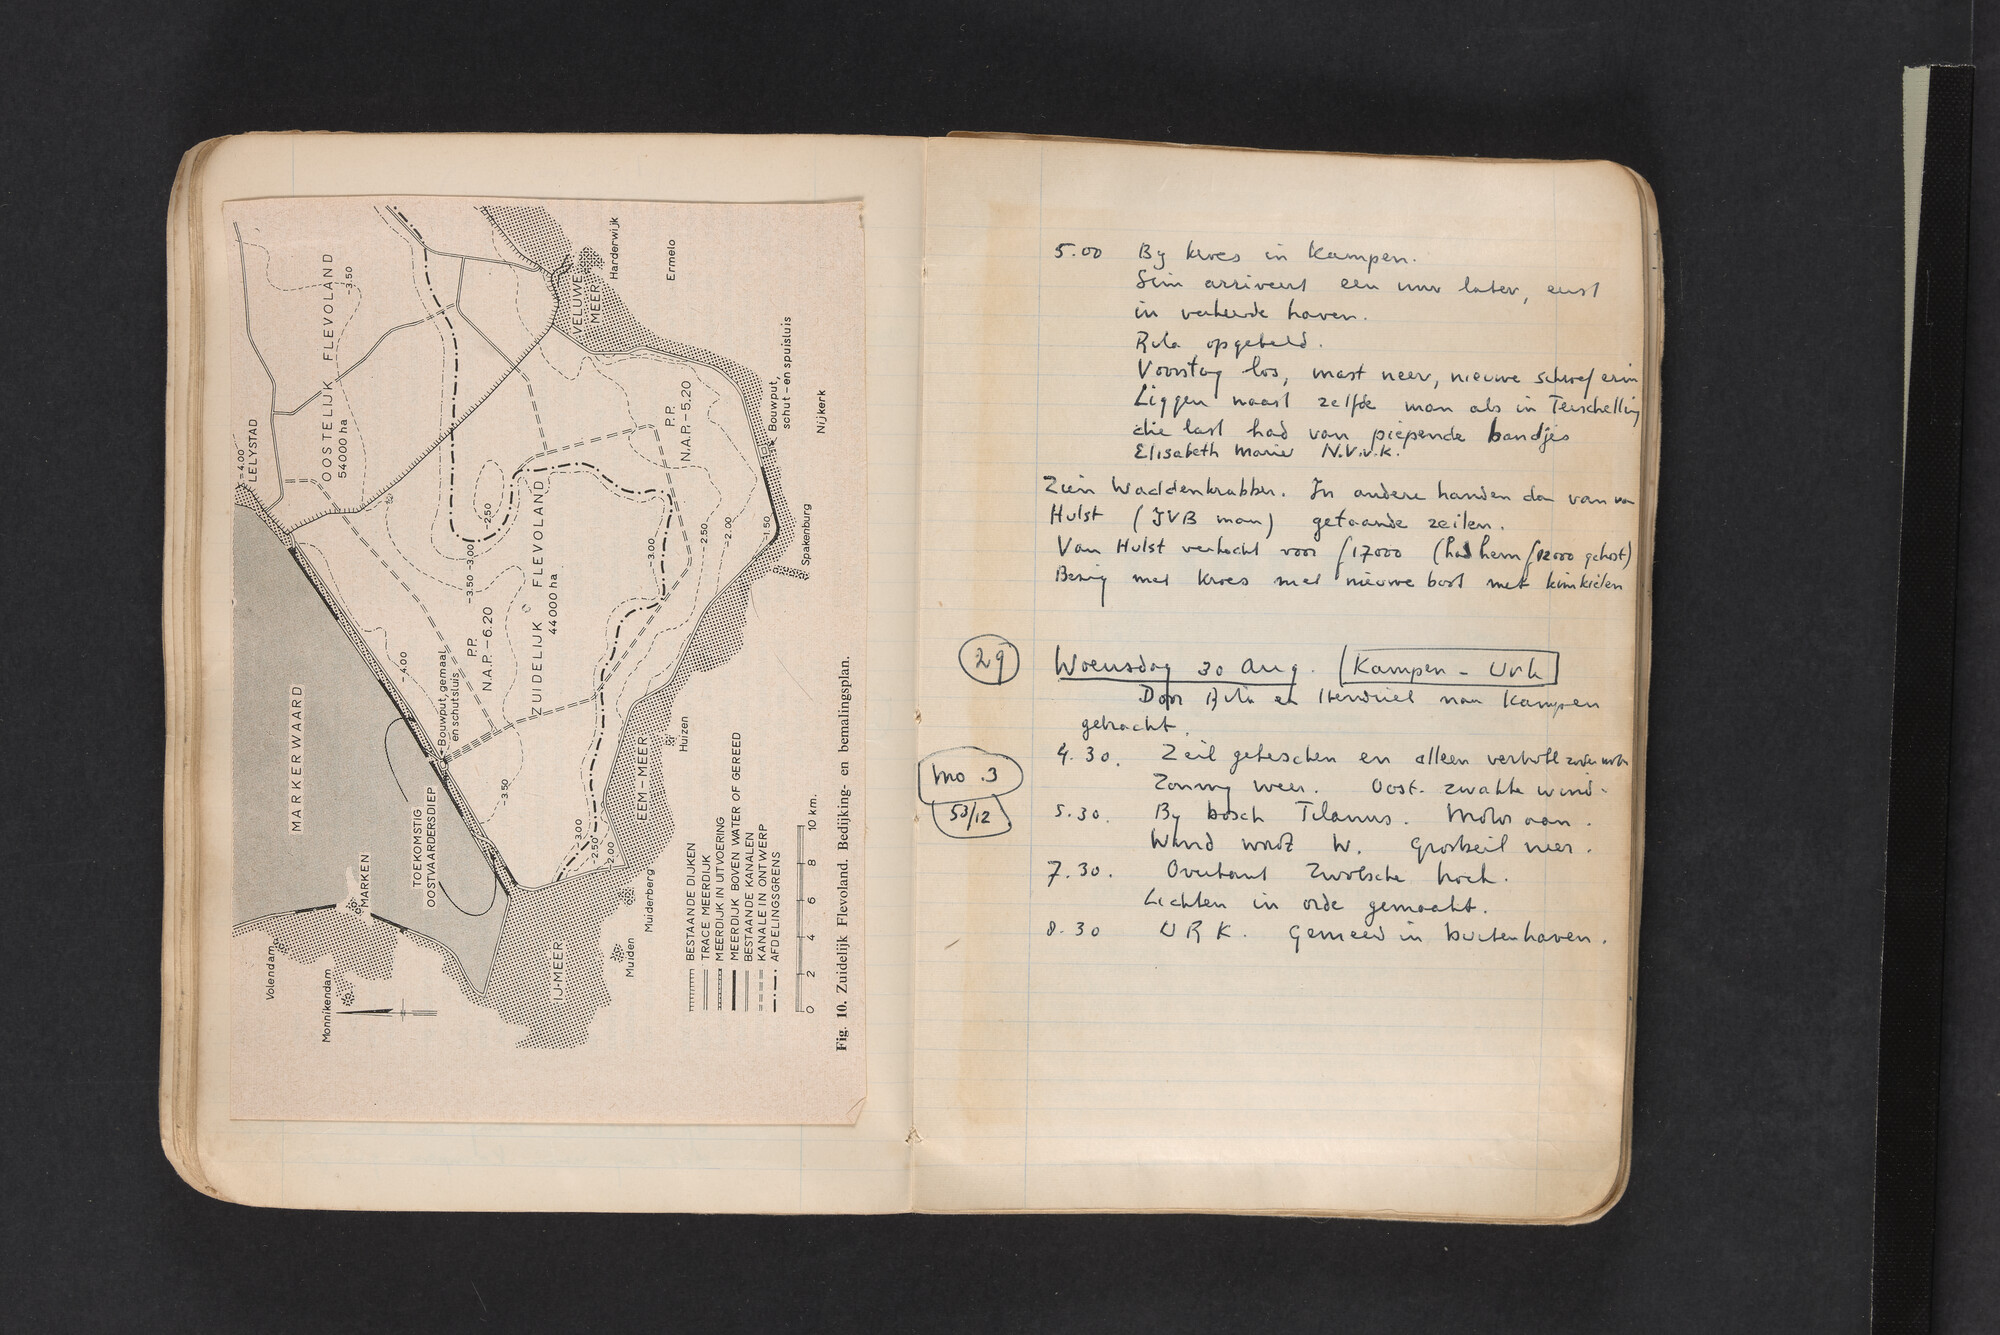 MARKERWAARD
OOSTELIJK FLEVOLAND
54000 ha
-3.50
-4.00
LELYSTAD
VELUWE
MEER
Harderwijk
Ermelo
Bouwput,
schut-en spuisluis
Nijkerk
Spakenburg
P.P.
N.A.P.-5.20
-2.50
-3.50
-3.00
-3.00
-2.50
-2.00
-1.50
ZUIDELIJK FLEVOLAND
44000 ha
P.P.
N.A.P.-6.20
-4.00
Bouwput, gemaal
en schutsluis
-3.50
TOEKOMSTIG
OOSTVAARDERSDIEP
MARKEN
Volendam
Monnikendam
IJ-MEER
EEM-MEER
Huizen
Muiderberg
Muiden
-3.00
-2.50
-2.00
BESTAANDE DIJKEN
TRACE MEERDIJK
MEERDIJK IN UITVOERING
MEERDIJK BOVEN WATER OF GEREED
BESTAANDE KANALEN
KANALE IN ONTWERP
AFDELINGSGRENS
0 2 4 6 8 10 km.
Fig. 10. Zuidelijk Flevoland. Bedijking- en bemalingsplan.
5.00 By kroes in Kampen.
Sim arriveert een uur later, eerst
in verkeerde haven.
Rita opgebeld.
Voorstag los, mast neer, nieuwe schroef erin
Liggen naast zelfde man als in Terschelling
die last had van piepende bandjes
Elisabeth Marie N.V.v.K.
Zien Waddenkrabber. In andere handen dan van van
Hulst (JVB man) getaande zeilen.
Van Hulst verkocht voor f17000 (had hem f12000 gekost)
Bezig met kroes met nieuwe boot met kimkielen
29 Woensdag 30 Aug. Kampen - Urk
Door Rita en Hendriel naar Kampen
gebracht.
4.30. Zeil geheschen en alleen verhaald zonder motor
mo.3 Zonnig weer. Oost. zwakke wind.
53/12 5.30. By bosch Tilanus. Motor aan.
Wind wordt W. Grootzeil neer.
7.30. Overkant Zwolsche hoek.
Lichten in orde gemaakt.
8.30 URK. Gemeerd in buitenhaven.